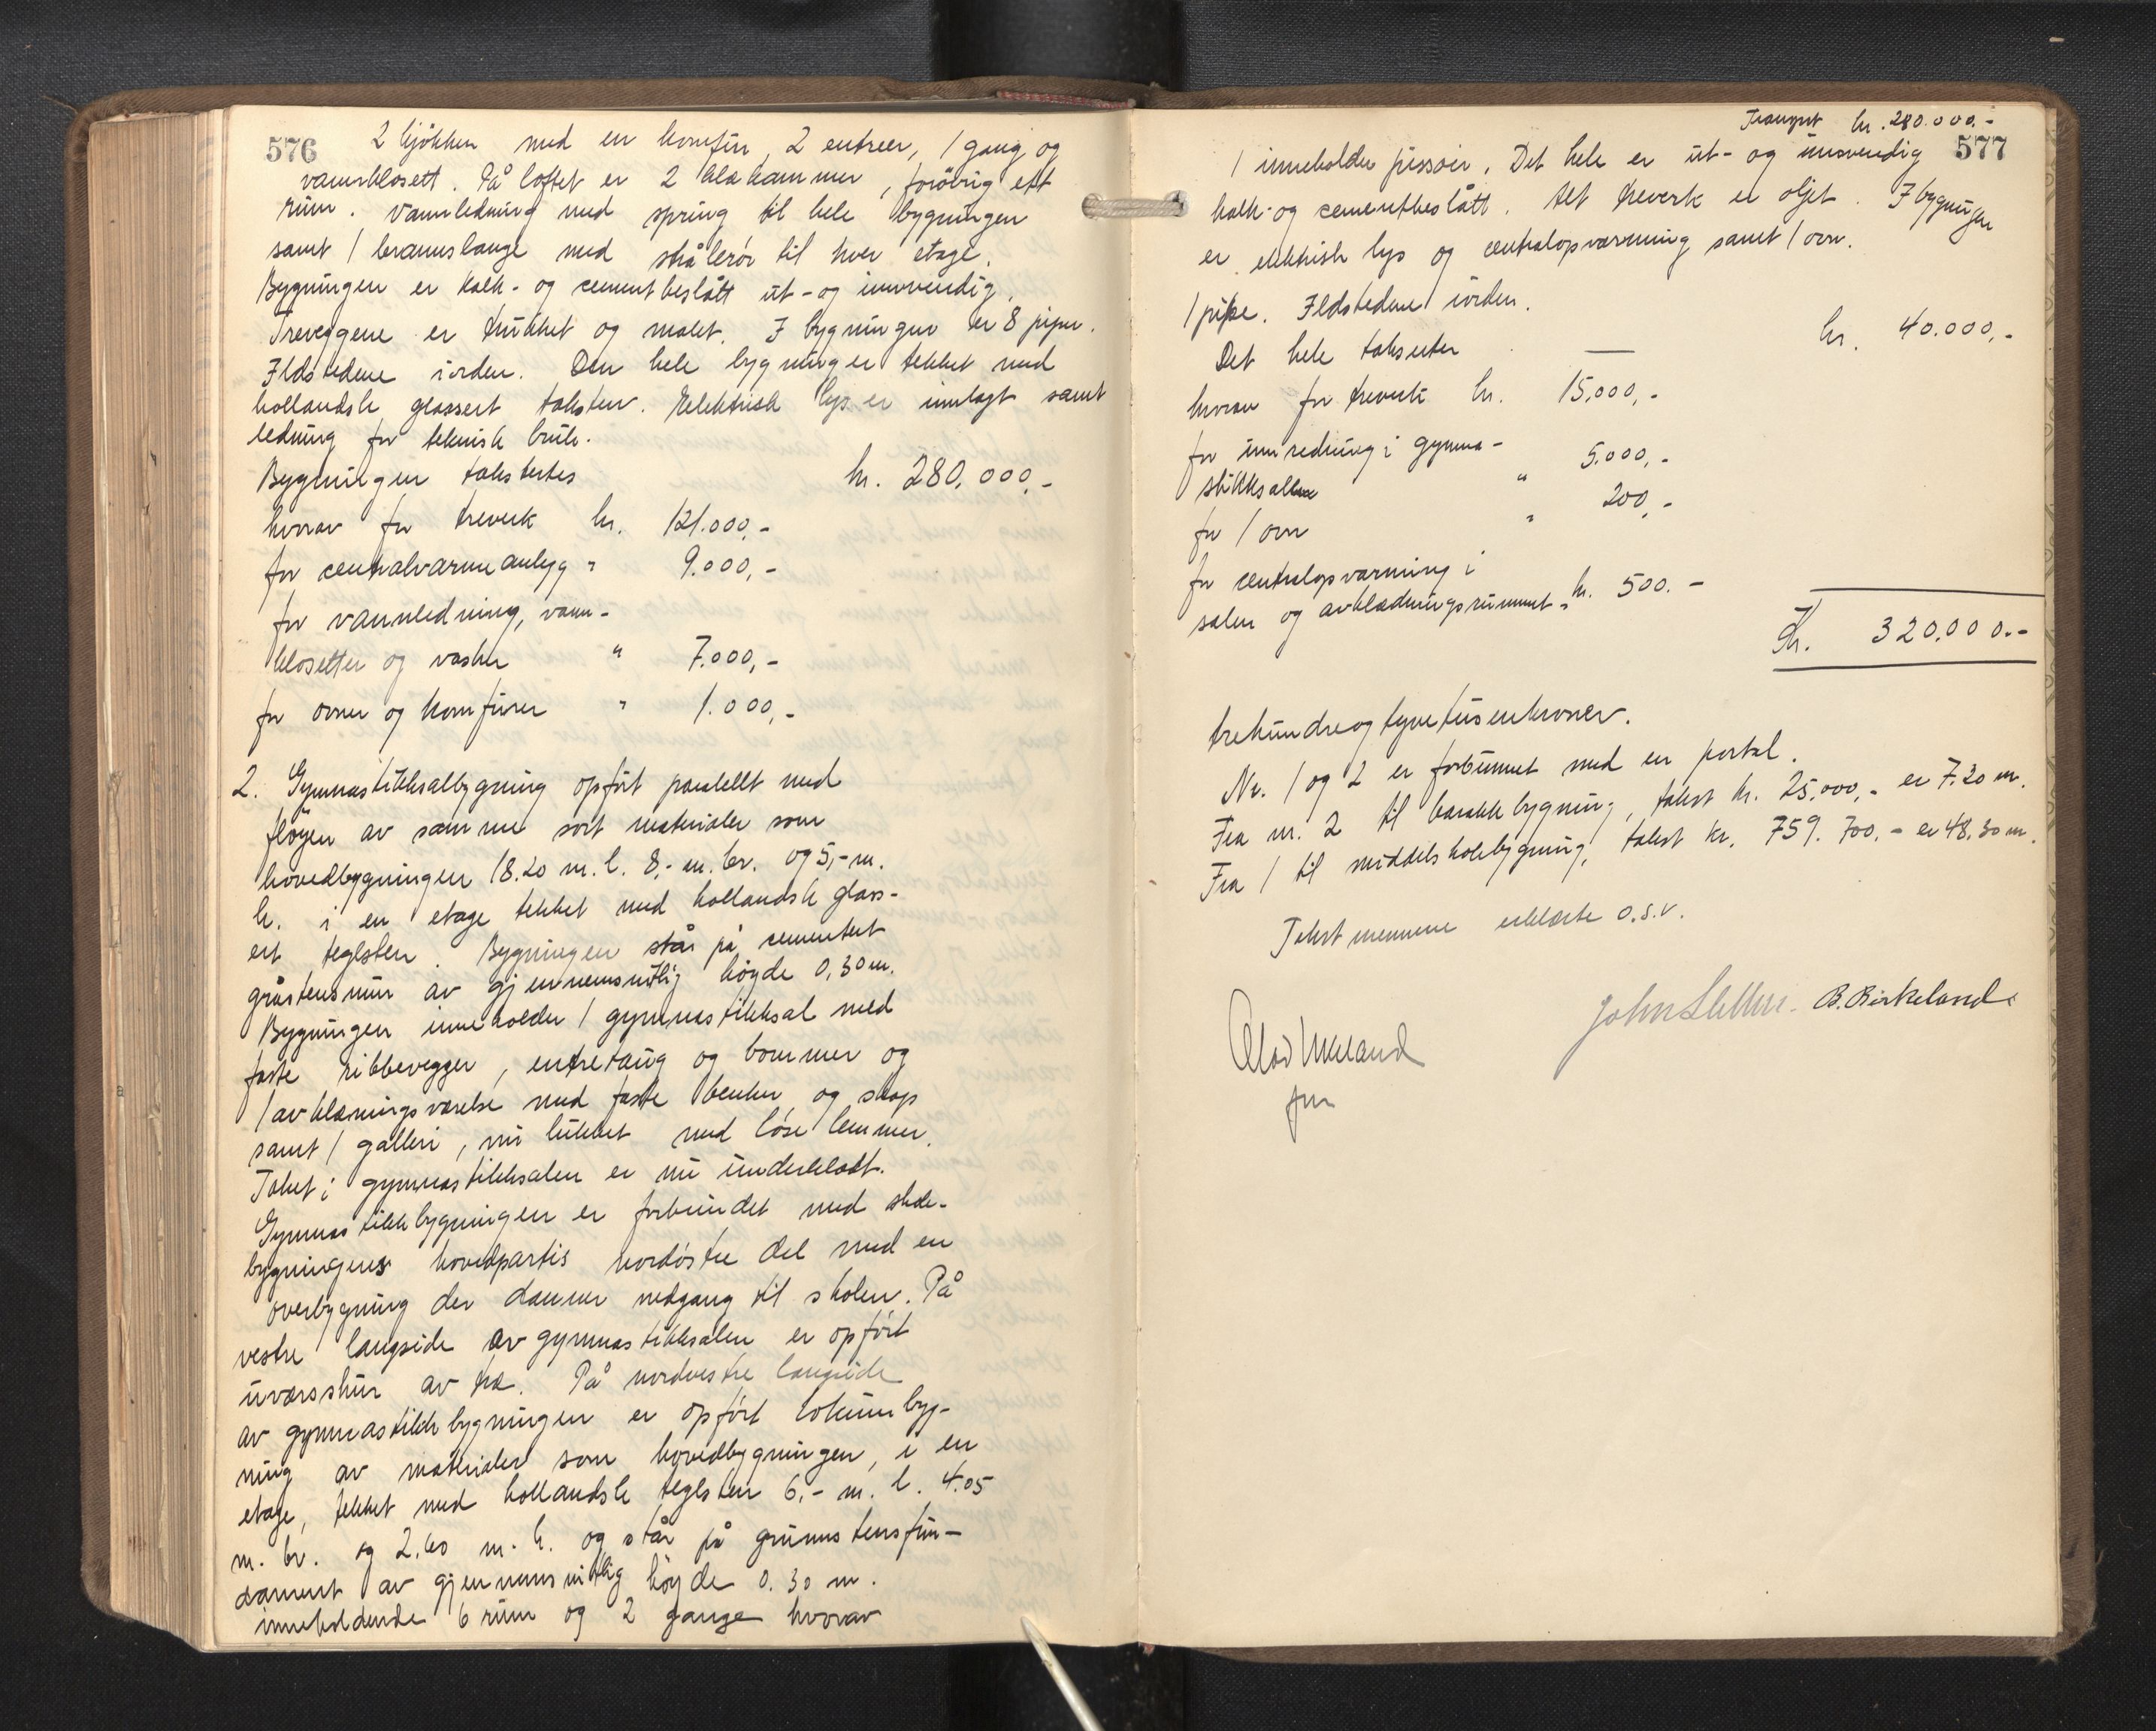 576
2 kjökken med en komfür, 2 entreer, 1 gang og
vannklosett. På loftet er 2 klækammer, forövrig ett
rüm. Vannledning med spring til hele bygningen
samt 1 brannslange med strålerör til hver etage.
Bygningen er kalk- og cementbeslått üt- og innvendig.
Treveggene er trükket og malet. I bygningen er 8 piper.
Ildstedene iorden. Den hele bygning er tekket med
hollandsk glassert taksten. Elektrisk lys er innlagt samt
ledning for teknisk brük.
Bygningen takstertes kr. 280.000,-
hvorav for treverk kr. 121.000,-
for centralvarmeanlegg " 9.000,-
for vannledning, vann-
klosetter og vasker " 7.000,-
for ovner og komfürer " 1.000,-
2. Gymnastikksalbygning opfört paralellt med
flöyen av samme sort materialer som
hovedbygningen 18.20 m. l. 8,- m. br. og 5,- m.
h. i en etage tekket med hollandsk glass-
ert teglsten. Bygningen står på cementert
gråstensmür av gjennemsnitlig höyde 0,30 m.
Bygningen inneholder 1 gymnastikksal med
faste ribbevegger, entretaug og bommer og
1 avklædningsværelse med faste benker og skap
samt 1 galleri, nü lükket med löse lemmer.
Taket i gymnastikksalen er nü ünderkladt.
Gymnastikkbygningen er forbündet med skole-
bygningens hovedpartis nordöstre del med en
overbygning der danner nedgang til skolen. På
vestre langside av gymnastikksalen er opfört
üværsskür av træ. På nordvestre langside
av gymnastikkbygningen er opfört lokümbyg-
ning av materialer som hovedbygningen, i en
etage, tekket med hollandsk teglsten 6,- m. l. 4.05
m. br. og 2.60 m. h. og står på grünnstensfün-
dament av gjennemsnitlig höyde 0.30 m.
inneholdende 6 rüm og 2 gange hvorav
Transport kr. 280.000,-
577
1 inneholder pissoir. Det hele er üt- og innvendig
kalk- og cementbeslått. Alt treverk er oljet. I bygningen
er elektrisk lys og centralopvarmning samt 1 ovn.
1 pipe. Ildstedene iorden.
Det hele taksertes — kr. 40.000,-
hvorav for treverk kr. 15.000,-
for innredning i gymna-
stikksalen " 5.000,-
for 1 ovn " 200,-
for centralopvarmning i
salen og avklædningsrümmet " kr. 500.-
Kr. 320.000.-
trehundreogtyvetüsenkroner.
Nr. 1 og 2 er forbünnet med en portal.
Fra nr. 2 til barakkbygning, takst kr. 25.000,- er 7.20 m.
Fra 1 til middelskolebygning, takst kr. 759.700,- er 48,30 m.
Takstmennene erklærte o.s.v.
John B. Birkeland
Olav